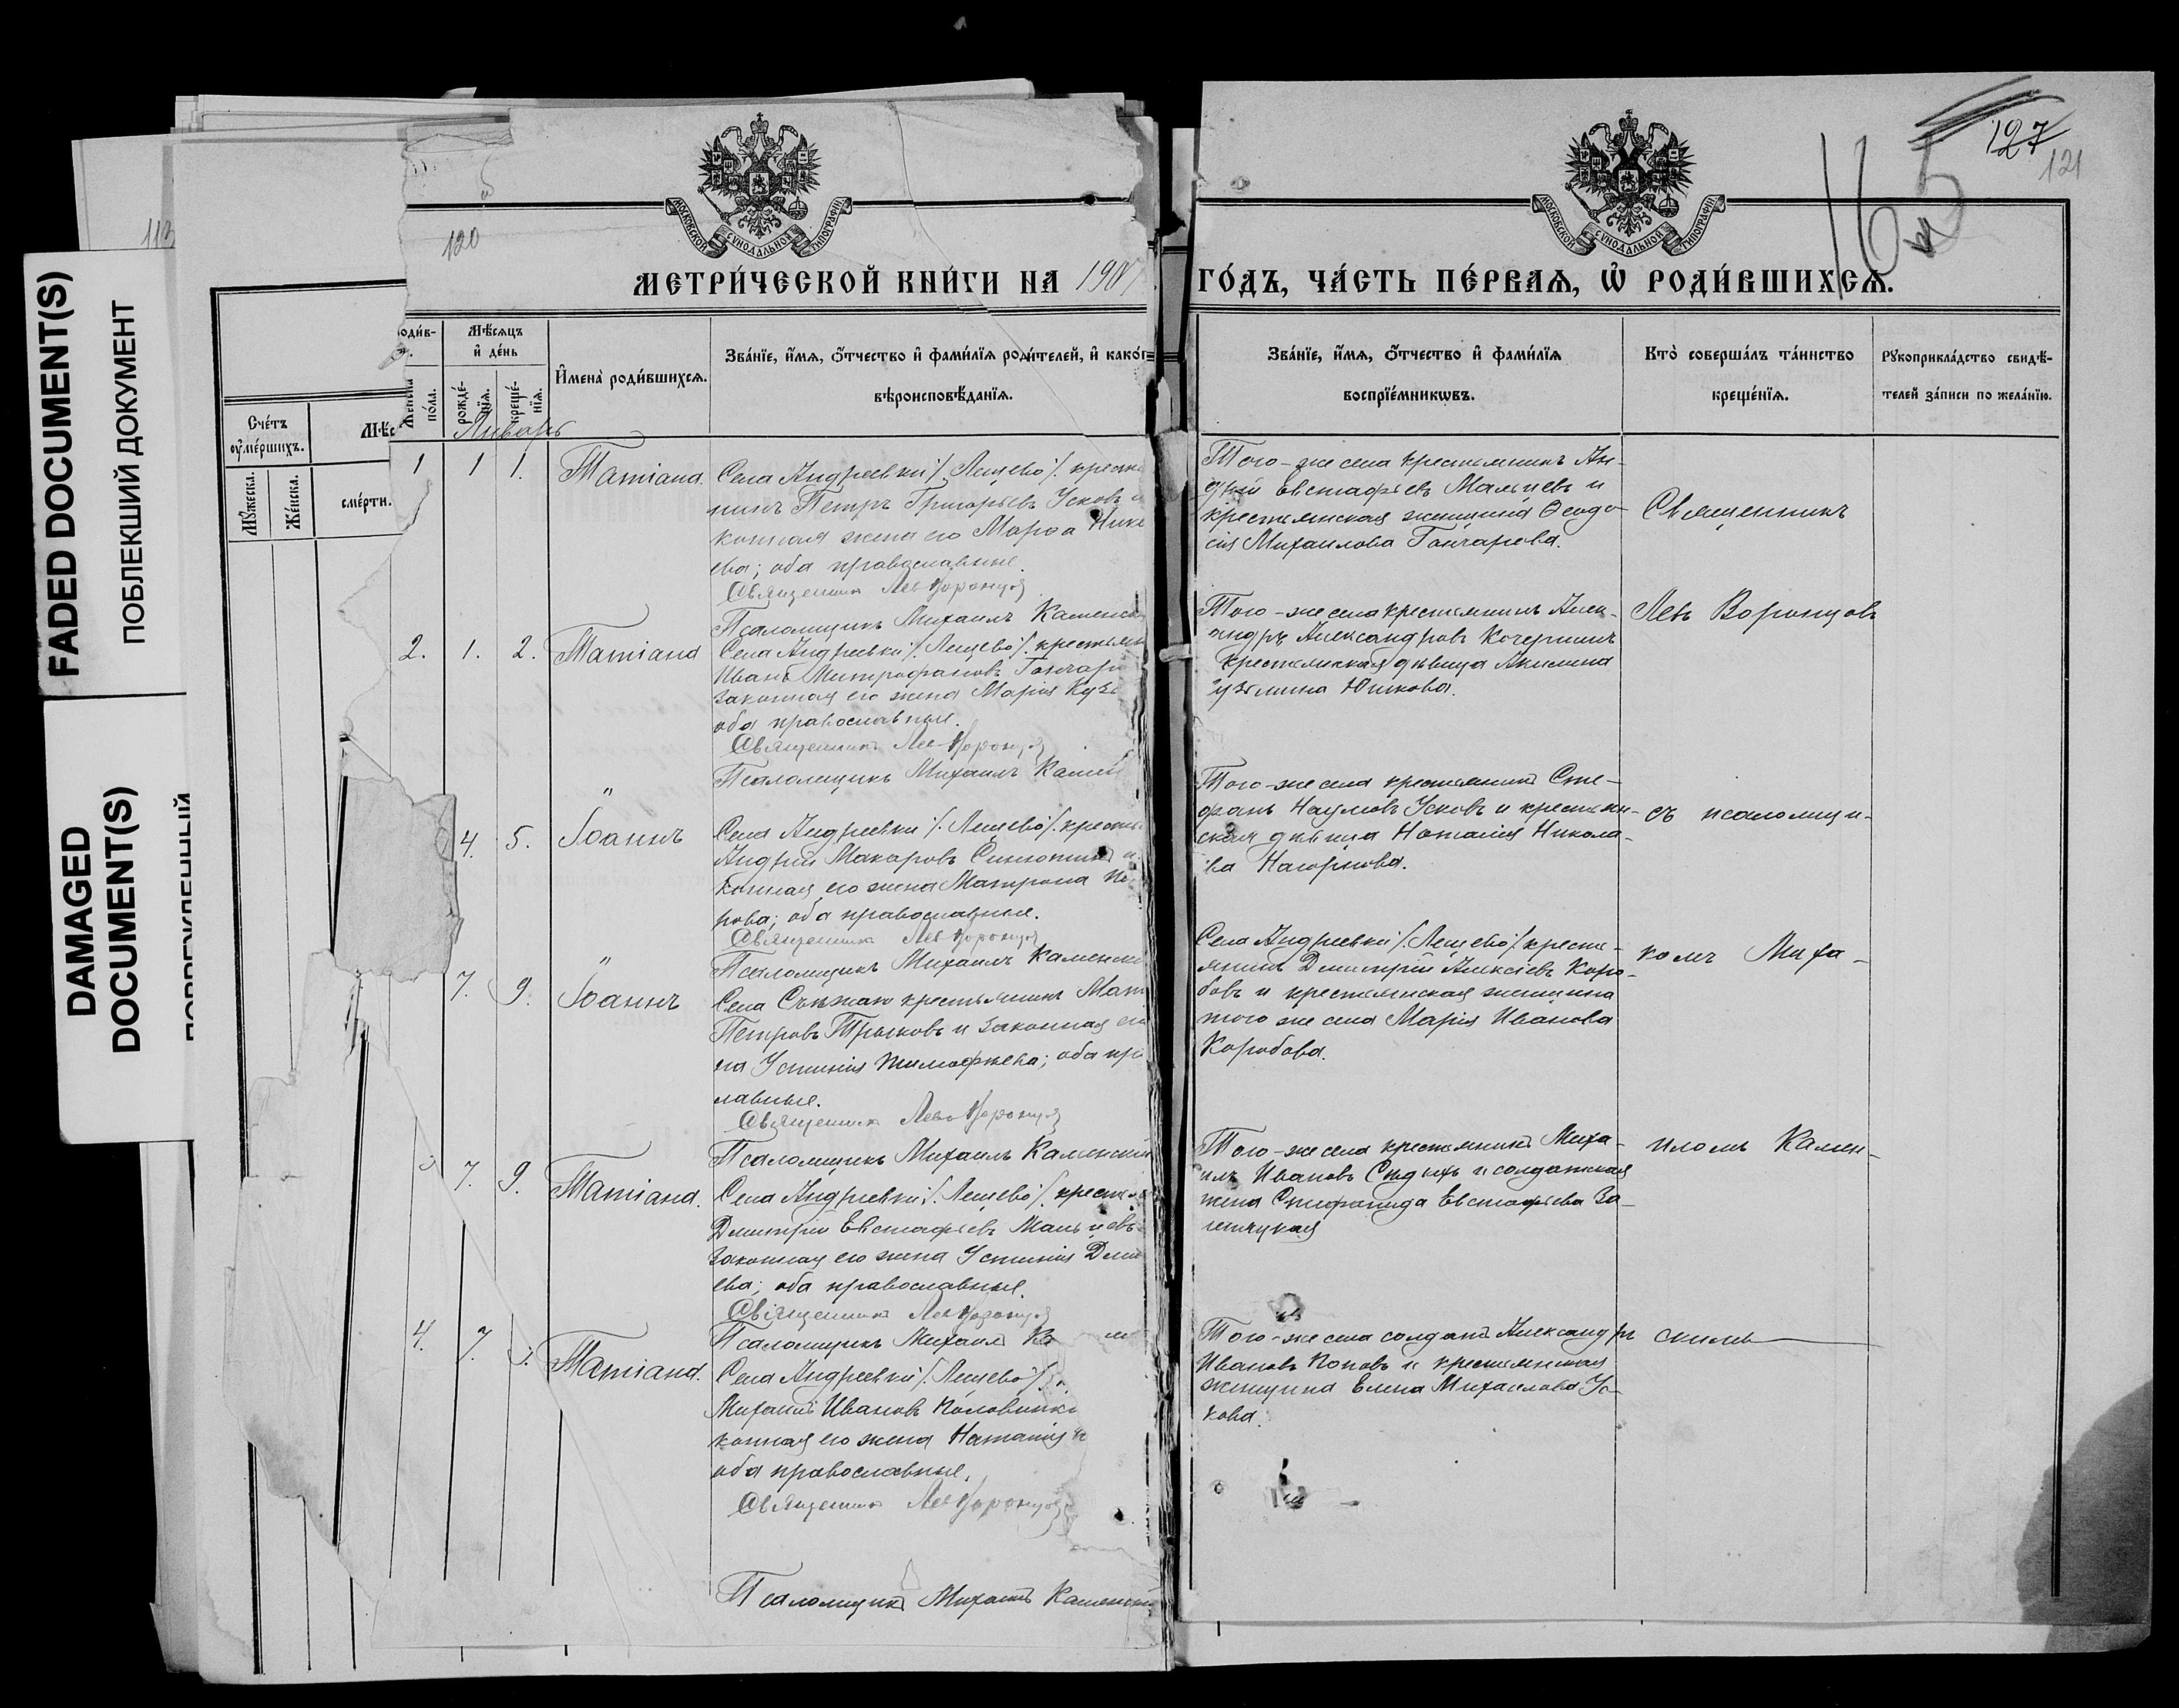 FADED DOCUMENT(S)
ПОБЛЕКШИЙ ДОКУМЕНТ
DAMAGED
DOCUMENT(S)
113
120
127
121
МОСКОВСКОЙ СѴНОДАЛЬНОЙ ТИПОГРАФІИ
МОСКОВСКОЙ СѴНОДАЛЬНОЙ ТИПОГРАФІИ
МЕТРИ́ЧЕСКОЙ КНИ́ГИ НА 190
ГО́ДЪ, ЧА́СТЬ ПЕ́РВАѦ, Ѿ РОДИ́ВШИХСѦ.
Сче́тъ
оуме́ршихъ.
Мꙋ́жеска.
Же́нска.
сме́рти.
Мѣ́сѧцъ
и҆ де́нь
рожде́нїѧ.
креще́нїѧ.
И҆мена̀ роди́вшихсѧ.
Зва́нїе, и҆́мѧ, ѻ҆́тчество и҆ фами́лїѧ роди́телей, и҆ како́г
вѣроисповѣ́данїѧ.
Зва́нїе, и҆́мѧ, ѻ҆́тчество и҆ фами́лїѧ
воспрїе́мникѡвъ.
Кто̀ соверша́лъ та́инство
креще́нїѧ.
Рꙋкоприкла́дство свидѣ́-
телей за́писи по жела́нїю.
Январь
1 1 1. Татіана.
Села Андреевки /. Лещево /. кресть
нинъ Петръ Григорьевъ Усковъ и
конная жена его Марѳа Ники
ева; оба православные.
Священникъ Левъ Воронцов
Псаломщикъ Михаилъ Каменск
Того-же села крестьянинъ Ан-
дрей Евстафьевъ Мальцевъ и
крестьянская женщина Ѳеодо-
сія Михаилова Гончарова.
Священникъ
2. 1. 2. Татіана
Села Андреевки /. Лещево /. крестьян
Иванъ Митрофановъ Гончаро
законная его жена Марія Кузь
оба православные.
Священникъ Левъ Воронцов
Псаломщикъ Михаилъ Камен
Того-же села крестьянинъ Алек-
андръ Александровъ Кочергинъ
крестьянская дѣвица Акилина
узьмина Юшкова.
Левъ Воронцовъ
" 4. 5. Іоаннъ
Села Андреевки /. Лещево /. кресть
Андрей Макаровъ Синютинъ и
конная его жена Матрона Пе
рова; оба православные.
Священникъ Левъ Воронцов
Псаломщикъ Михаилъ Каменск
Того-же села крестьянинъ Сте-
фанъ Наумовъ Усковъ и крестьян-
ская дѣвица Наталія Никола-
ева Нагорнова.
съ псаломщи-
" 7. 9. Іоаннъ
Села Снѣжаго крестьянинъ Мат
Петровъ Трыковъ и законная ег
на Устинія Тимофѣева; оба пра
лавные.
Священникъ Левъ Воронцов
Псаломщикъ Михаилъ Каменскій
Села Андреевки /. Лещево /. кресть-
янинъ Димитрій Алексіевъ Коро-
бовъ и крестьянская женщина
того же села Марія Иванова
Коробова.
комъ Миха-
7. 9. Татіана.
Села Андреевки /. Лещево /. крест
Димитрій Евстафьевъ Мальцевъ
законная его жена Устинія Дми
ева; оба православные.
Священникъ Левъ Воронцов
Псаломщикъ Михаилъ Ка
Того-же села крестьянинъ Миха-
илъ Ивановъ Сѣдыхъ и солдатская
жена Стефанида Евстафьева За-
иломъ Камен-
4. 7. Татіана.
Села Андреевки /. Лещево /.
Михаилъ Ивановъ Половинки
конная его жена Наталія
оба православные.
Священникъ Левъ Воронцов
Псаломщикъ Михаилъ Каменскій
Того-же села солдатъ Александръ
Ивановъ Поповъ и крестьянская
женщина Елена Михаилова Ус-
кова.
скимъ